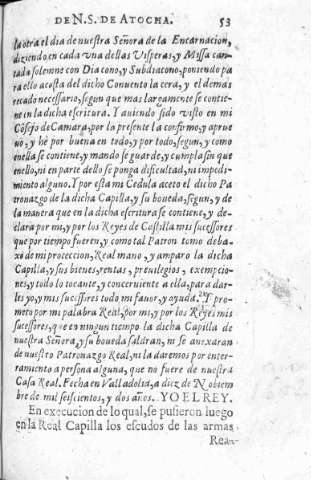 DE N. S. DE ATOCHA. 53
la otra el dia de nuestra Señora de la Encarnacion,
diziendo en cada vna dellas Visperas, y Missa can-
tada solemne con Diacono, y Subdiacono, poniendo pa
ra ello acosta del dicho Conuento la cera, y el demàs
recado necessario, segun que mas largamente se contie-
ne en la dicha escritura. Y auiendo sido visto en mi
Cõsejo de Camara, por la presente la confirmo, y aprue
uo, y hè por buena en todo, y por todo, segun, y como
en ella se contiene, y mando se guarde, y cumpla sin que
en ello, ni en parte dello se ponga dificultad, ni impedi-
miento alguno. Y por esta mi Cedula aceto el dicho Pa
tronazgo de la dicha Capilla, y su boueda, segun, y de
la manera que en la dicha escritura se contiene, y de-
clara por mi, y por los Reyes de Castilla mis sucessores
que por tiempo fueren, y como tal Patron tomo deba-
xo de mi proteccion, Real mano, y amparo la dicha
Capilla, y sus bienes, rentas, preuilegios, exempcio-
nes, y todo lo tocante, y concerniente a ella, para dar-
les yo, y mis sucessores todo mi fauor, y ayuda. Y pro-
meto por mi palabra Real, por mi, y por los Reyes mis
sucessores, que en ningun tiempo la dicha Capilla de
nuestra Señora, y su boueda saldran, ni se anexaran
de nuestro Patronazgo Real, ni la daremos por enter-
ramiento a persona alguna, que no fuere de nuestra
Casa Real. Fecha en Valladolid, a diez de Nobiem
bre de mil seiscientos, y dos años. YO EL REY.
En execucion de lo qual, se pusieron luego
en la Real Capilla los escudos de las armas
Rea-